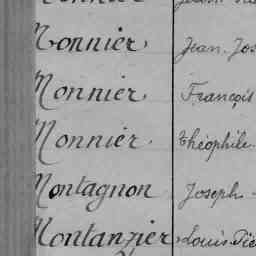 Monnier, Jean. Jos
Monnier, François
Monnier. théophile.
Montagnon Joseph
Montanzier, Louis